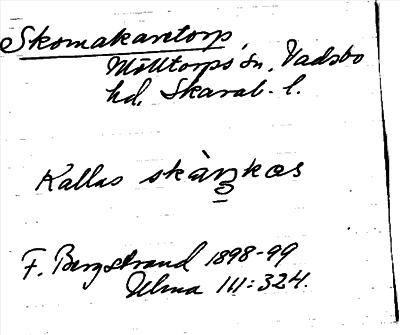 Skomakaretorp,
Mölltorps sn, Vadsbo
hd, Skarab. l.
Kallas
F. Bergstrand 1898-99
Ulma 111:324.